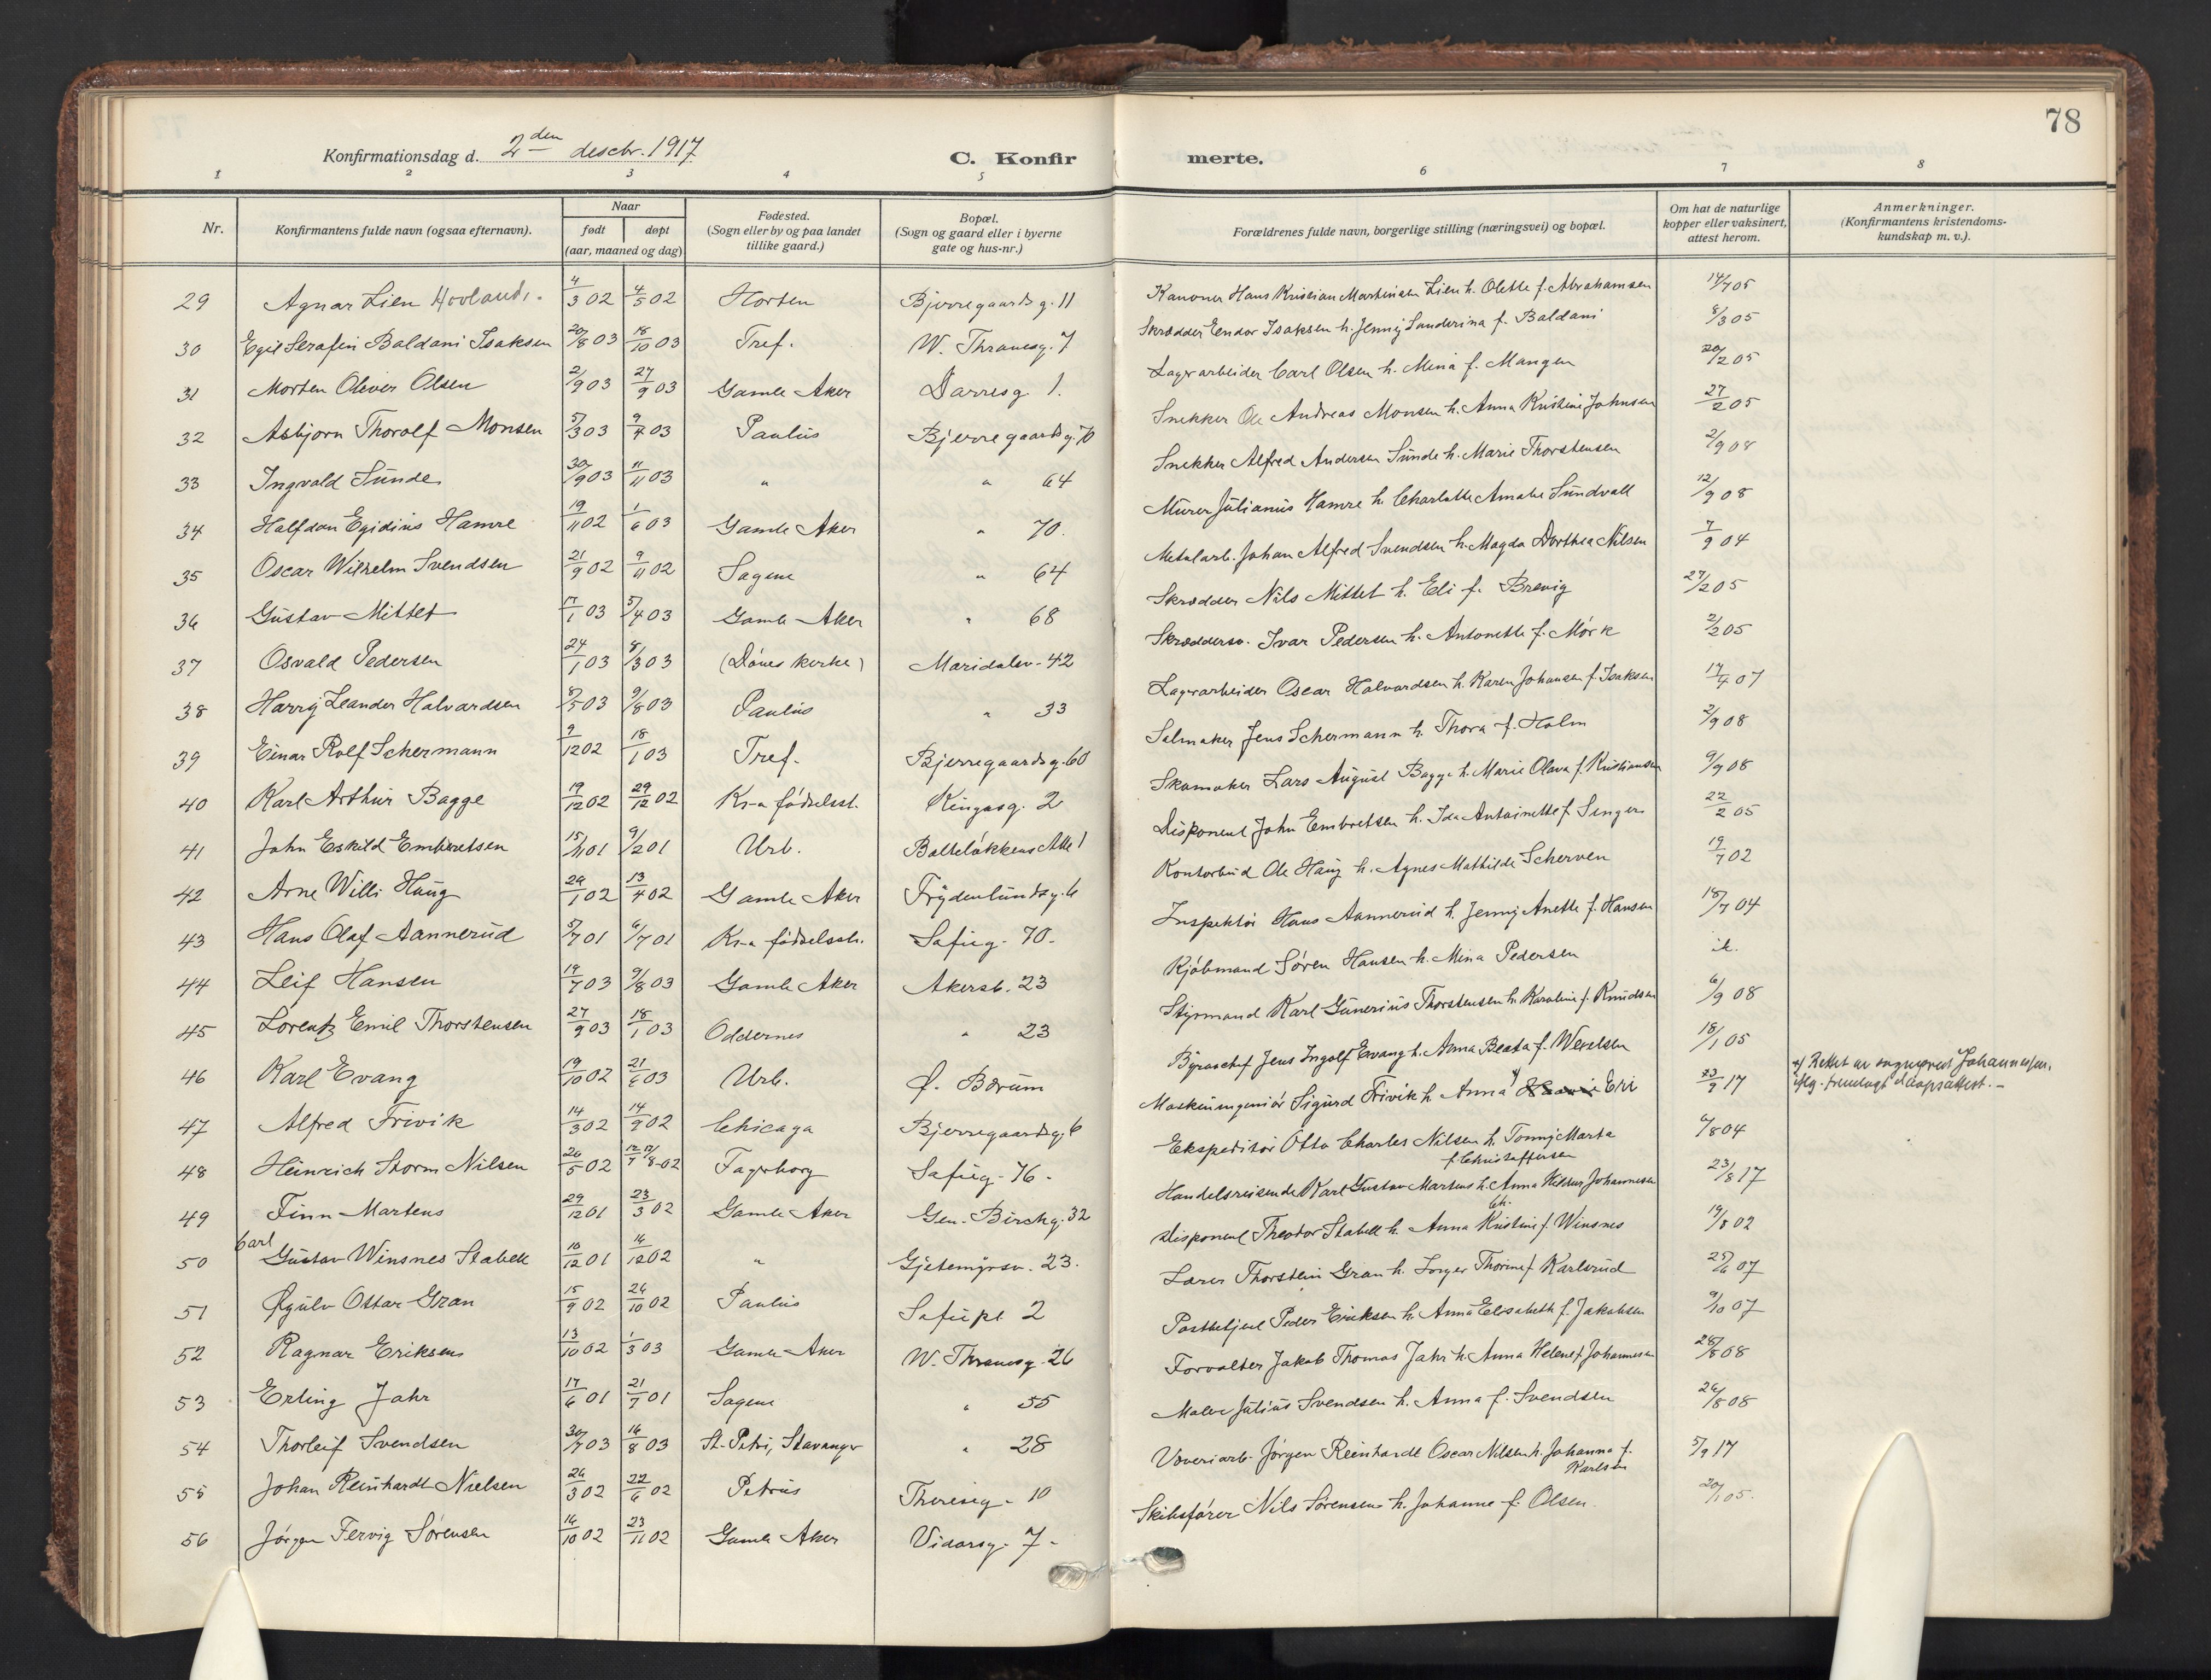 78
Konfirmationsdag d. 2den desebr. 1917 C. Konfirmerte.
1 2 3 4 5 6 7 8
Nr. Konfirmantens fulde navn (ogsaa efternavn). Naar født døpt (aar, maaned og dag) Fødested. (Sogn eller by og paa landet tillike gaard.) Bopæl. (Sogn og gaard eller i byerne gate og hus-nr.) Forældrenes fulde navn, borgerlige stilling (næringsvei) og bopæl. Om hat de naturlige kopper eller vaksinert, attest herom. Anmerkninger. (Konfirmantens kristendomskundskap m. v.).
29 Agnar Lien Hovland. 4/3 02 4/5 02 Horten Bjerregaards g. 11 Kanoner Hans Kristian Martinsen Lien h. Olette f. Abrahamsen 14/7 05
30 Egil Serafin Baldani Isaksen 20/8 03 18/10 03 Tref. W. Thranesg. 7 Skrædder Eendor Isaksen h. Jenny Sanderina f. Baldani 8/3 05
31 Morten Oliver Olsen 2/9 03 27/9 03 Gamle Aker Darresg. 1. Lagerarbeider Carl Olsen h. Mina f. Mangen 20/2 05
32 Asbjørn Thorolf Monsen 5/3 03 9/4 03 Paulus Bjerregaardsg. 70 Snekker Ole Andreas Monsen h. Anna Kristine Johnsen 27/2 05
33 Ingvald Sunde 30/9 03 11/11 03 " " 64 Snekker Alfred Andersen Sunde h. Marie Thorstensen 2/9 08
34 Halfdan Egidius Hamre 19/11 02 1/6 03 Gamle Aker " 70. Murer Julianus Hamre h. Charlotte Amalie Sundvall 12/9 08
35 Oscar Wilhelm Svendsen 21/9 02 9/11 02 Sagene " 64 Metalarb. Johan Alfred Svendsen h. Magda Dorthea Nilsen 7/9 04
36 Gustav Mittet 17/1 03 5/4 03 Gamle Aker " 68 Skrædder Nils Mittet h. Eli f. Brevig 27/2 05
37 Osvald Pedersen 24/1 03 8/3 03 (Døves kirke) Maridalsv. 42 Skræddersv. Ivar Pedersen h. Antonette f. Mørk 2/2 05
38 Harry Leander Halvardsen 8/5 03 9/8 03 Paulus " 33 Lagerarbeider Oscar Halvardsen h. Karen Johansen f. Isaksen 17/4 07
39 Einar Rolf Schermann 9/12 02 18/1 03 Tref. Bjerregaards g. 60 Salmaker Jens Schermann h. Thora f. Holm 2/9 08
40 Karl Arthur Bagge 19/12 02 29/12 02 Kr-a fødselsst. Kingosg. 2 Skomaker Lars August Bagge h. Marie Olava f. Kristiansen 9/9 08
41 John Eskild Embretsen 15/1 01 9/2 01 Urb. Balteløkkens Alle 1 Disponent John Embretsen h. Ida Antoinette f. Singer 22/2 05
42 Arne Willi Haug 29/1 02 13/4 02 Gamle Aker Frydenlundsg. 6 Kontorbud Ole Haug h. Agnes Mathilde Scherven 19/7 02
43 Hans Olaf Aannerud 5/7 01 6/7 01 Kr-a fødselsst. Sofieg. 70. Inspektør Hans Aannerud h. Jenny Anette f. Hansen 18/7 04
44 Leif Hansen 19/7 03 9/8 03 Gamle Aker Akersb. 23 Kjøbmand Søren Hansen h. Mina Pedersen ik.
45 Lorentz Emil Thorstensen 27/9 03 18/1 03 Oddernes " 23 Styrmand Karl Gunerius Thorstensen h. Karoline f. Knudsen 6/9 08
46 Karl Evang 19/10 02 21/6 03 Urb. Ø. Bærum Byråchef Jens Ingolf Evang h. Anna Beata f. Wexelsen 18/1 05
47 Alfred Trivik 14/3 02 14/9 02 Chicago Bjerregaardsg. 6 Maskiningeniør Sigurd Trivik h. Anna x) Eri 23/9 17 x) Rettet av sogneprest Johannessen, iflg. fremlagt daapsattest. -
48 Heinrich Storm Nilsen 26/5 02 8-02 Fagerborg Sofieg. 76. Ekspeditør Otto Charles Nilsen h. Tonny Marta f. Christoffersen 6/8 04
49 Finn Martens 29/12 01 23/3 02 Gamle Aker Gen. Birchg. 32 Handelsreisende Karl Gustav Martens h. Anna Hildur Johannesen 23/8 17
50 Carl Gustav Winsnes Stabell 10/12 01 14/12 02 " Gjetemyrsv. 23. Disponent Theodor Stabell h. Anna Kristine Ch. f. Winsnes 19/8 02
51 Øyulv Ottar Gran 15/9 02 26/10 02 Paulus Sofiepl 2 Lærer Thorstein Gran h. Inger Thorine f. Karlsrud 25/6 07
52 Ragnar Eriksen 13/10 02 1/3 03 Gamle Aker W. Thranesg. 26 Postbetjent Peder Eriksen h. Anna Elisabeth f. Jakobsen 9/10 07
53 Erling Jahr 17/6 01 21/7 01 Sagene " 55 Forvalter Jakob Thomas Jahr h. Anna Helene f. Johannesen 28/8 08
54 Thorleif Svendsen 30/7 03 16/8 03 St. Petri, Stavanger " 28 Maler Julius Svendsen h. Anna f. Svendsen 26/8 08
55 Johan Reinhardt Nielsen 26/3 02 22/6 02 Petrus Thereseg. 10 Væveriarb. Jørgen Reinhardt Oscar Nilsen h. Johanna f. Karlsen 5/9 17
56 Jørgen Fervig Sørensen 14/10 02 23/11 02 Gamle Aker Vidarsg. 7. Skibsfører Nils Sørensen h. Johanne f. Olsen. 20/1 05.